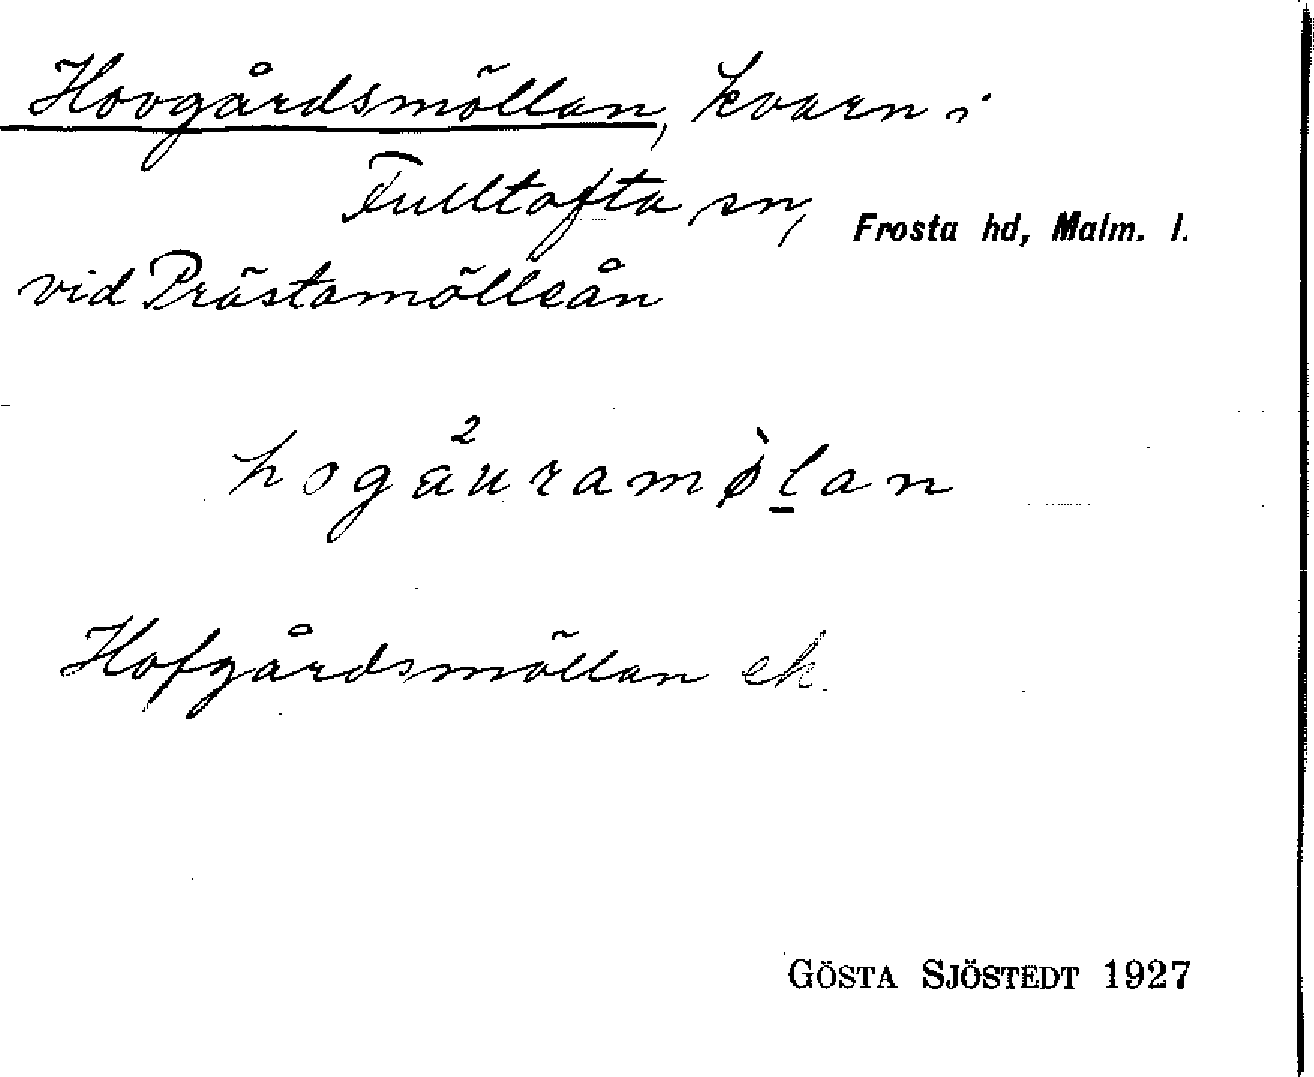 Hovgårdsmöllan, kvarn i
Fulltofta sn, Frosta hd, Malm. l.
vid Prästamölleån
hogåuramø̀lan
Hofgårdsmöllan ek.
GÖSTA SJÖSTEDT 1927